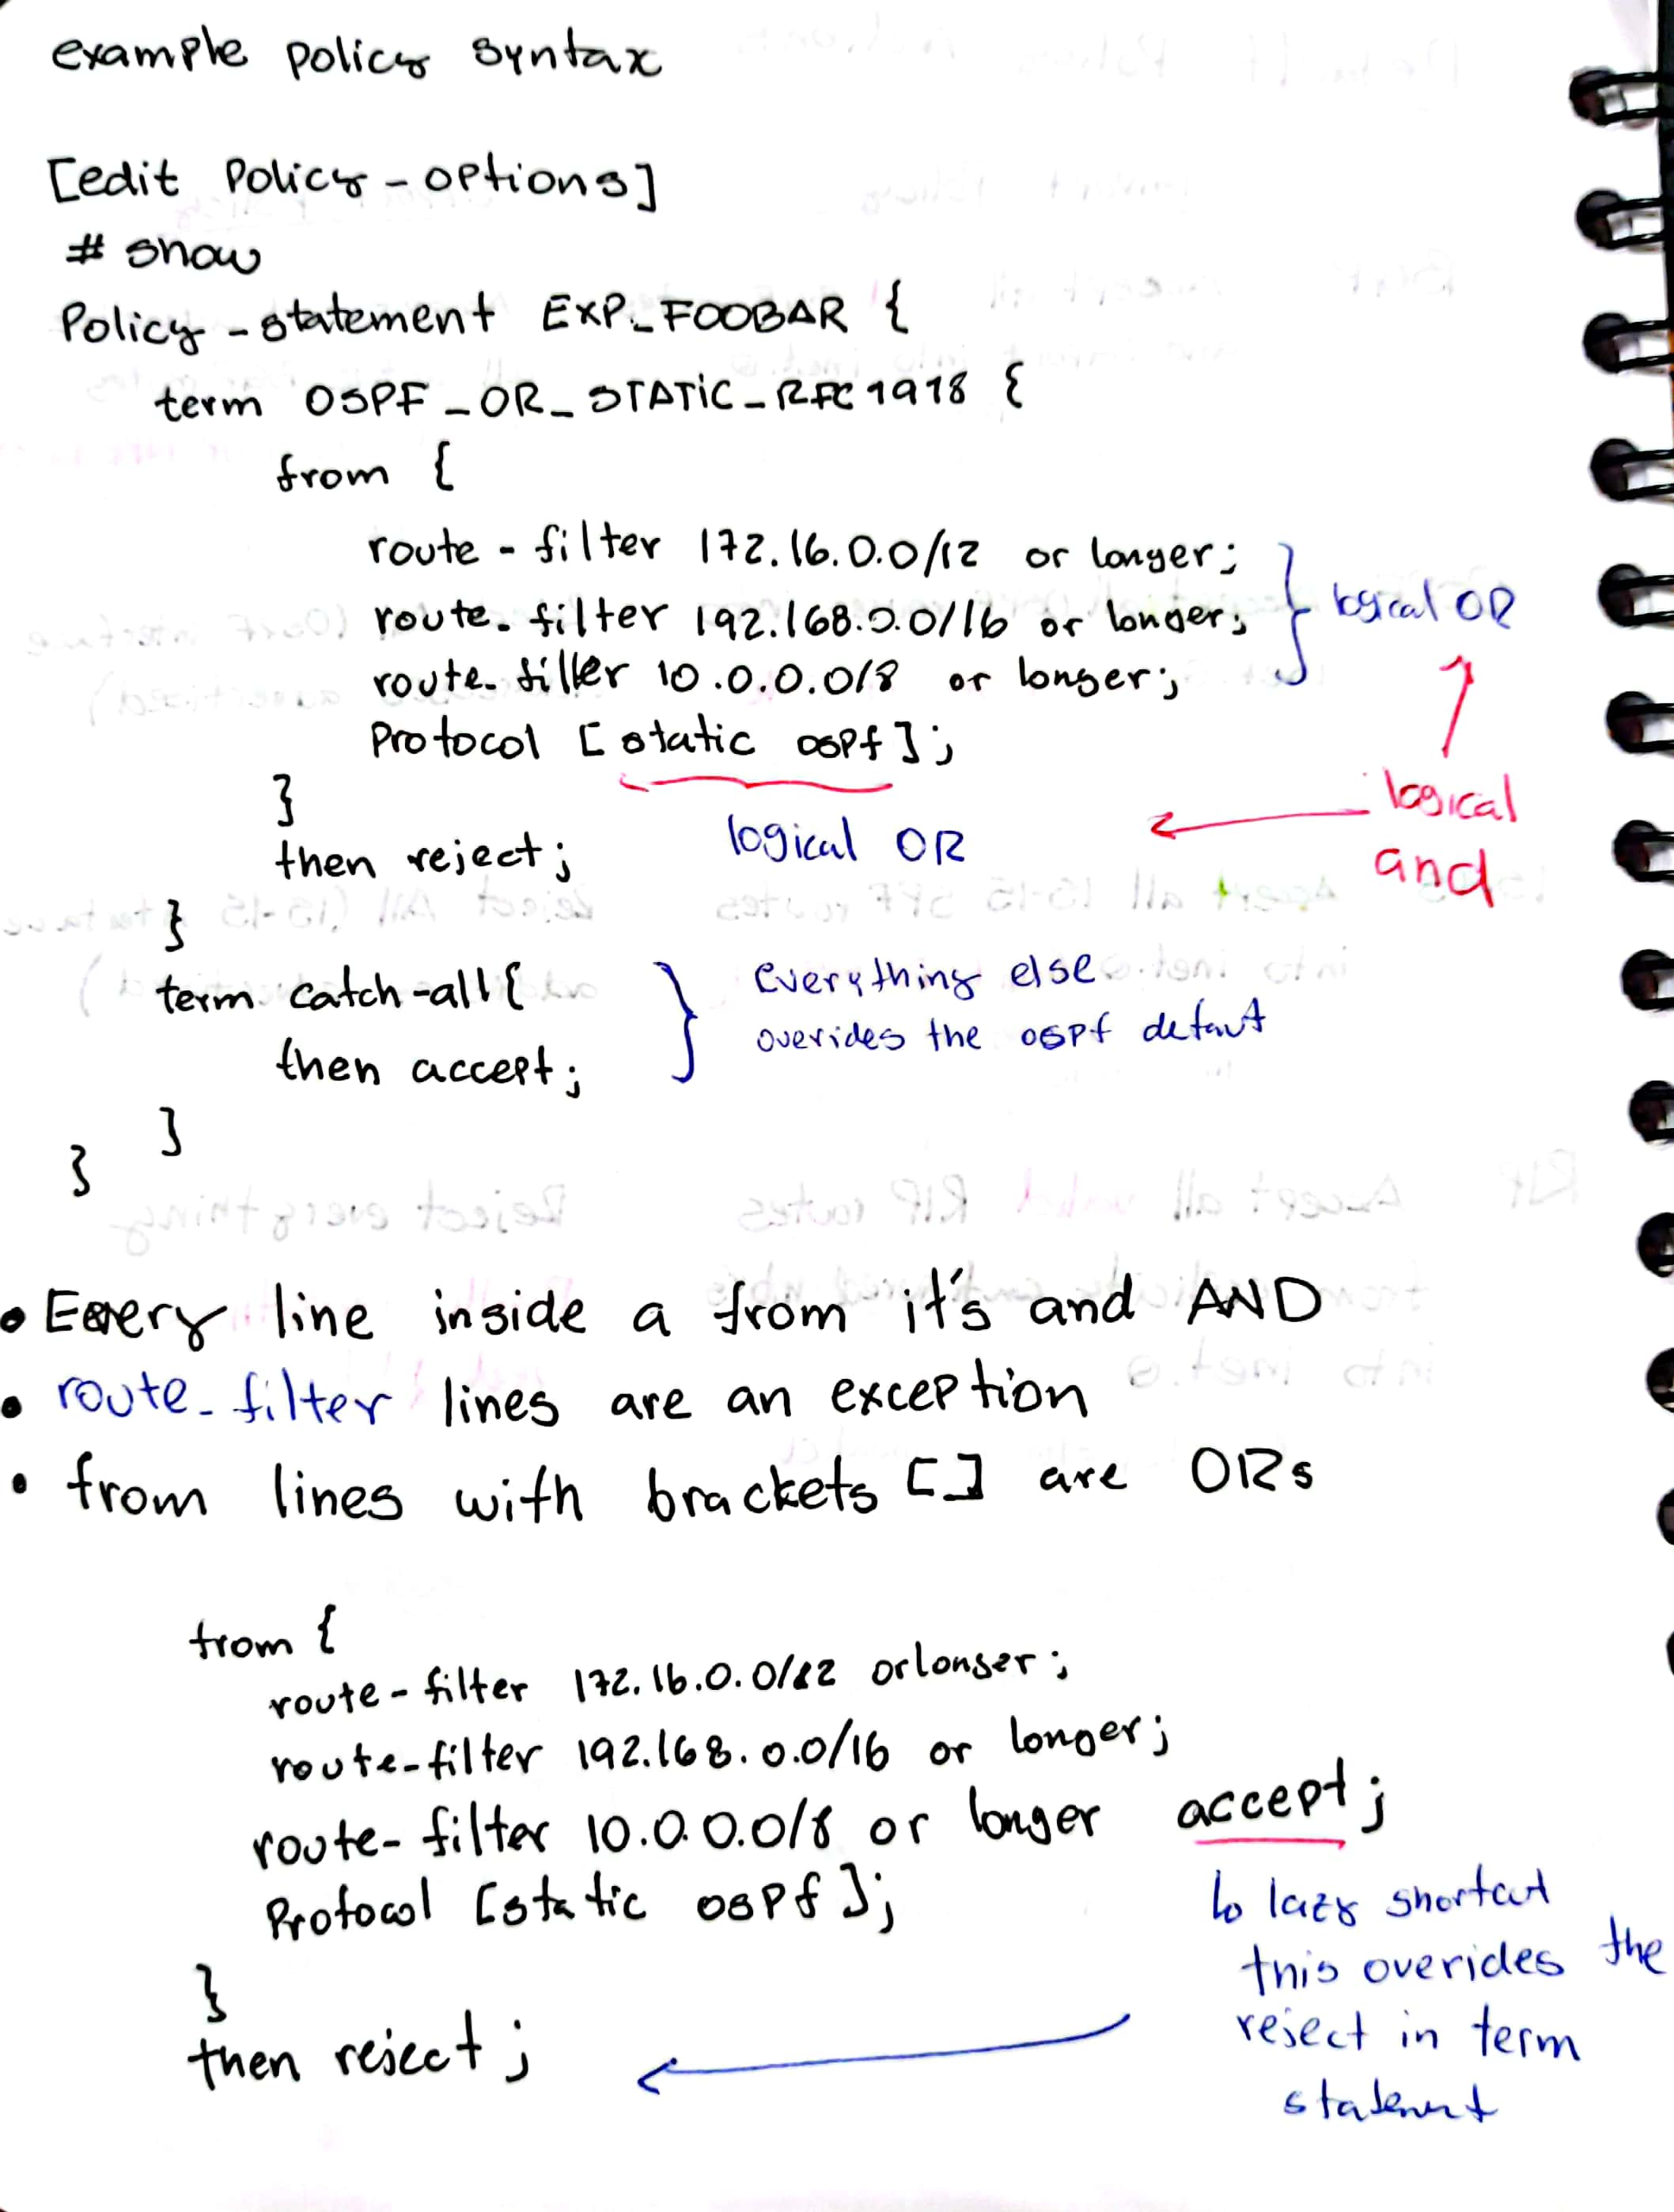 example policy syntax
[edit Policy-options]
# show
Policy-statement EXP_FOOBAR {
term OSPF_OR_STATIC_RFC1918 {
from {
route-filter 172.16.0.0/12 or longer;
route-filter 192.168.0.0/16 or longer;
route-filter 10.0.0.0/8 or longer;
logical OR
Protocol [static ospf];
}
logical OR
logical
and
then reject;
}
term catch-all{
then accept;
everything else
overides the ospf default
}
}
• Every line inside a from it's and AND
• route-filter lines are an exception
• from lines with brackets [] are ORs
from {
route-filter 172.16.0.0/12 orlonger;
route-filter 192.168.0.0/16 or longer;
route-filter 10.0.0.0/8 or longer accept;
Protocol [static ospf];
}
then reject;
lazy shortcut
this overides the
reject in term
statement